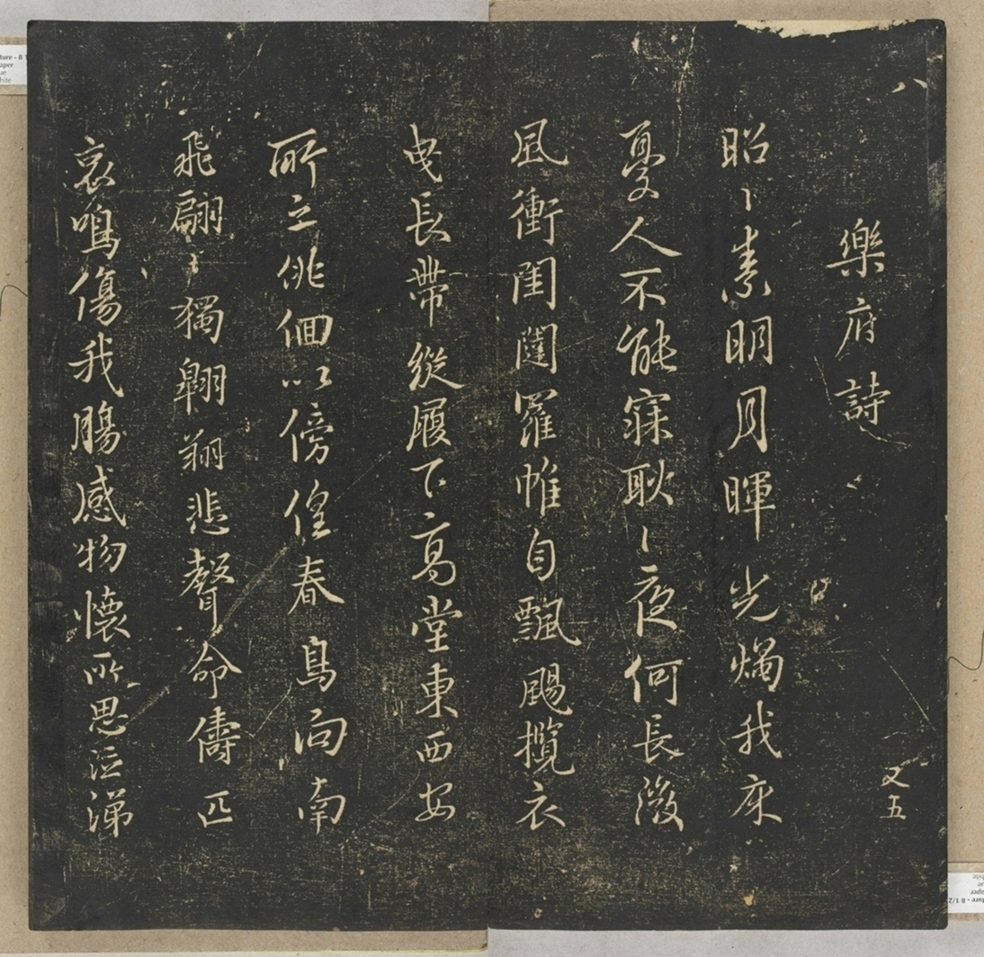 樂府詩
又五
昭〻素明月暉光燭我床
憂人不能寐耿〻夜何長微
風衝閨闥羅帷自飄颺攬衣
曳長帶縱履下高堂東西安
所之俳佪以傍偟春鳥向南
飛翩〻獨翱翔悲聲命儔匹
哀鳴傷我腸感物懷所思泣涕